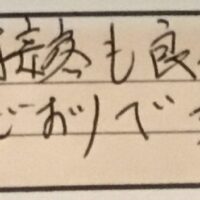 接客も良
どおりで